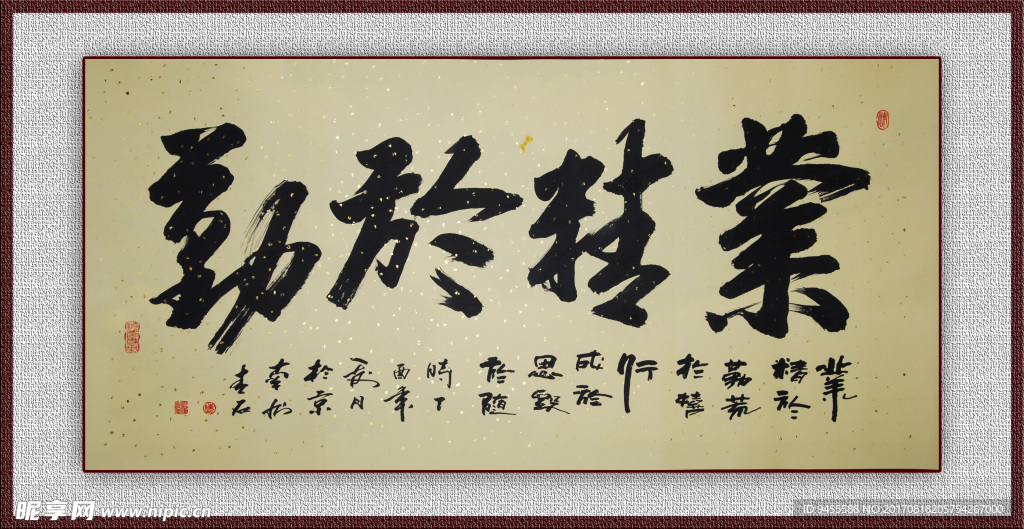 業精於勤
業精於勤荒於嬉行成於思毀於隨
時丁酉年
月於京
青石
昵享网 www.nipic.cn
ID:9455588 NO:20170818205754267000